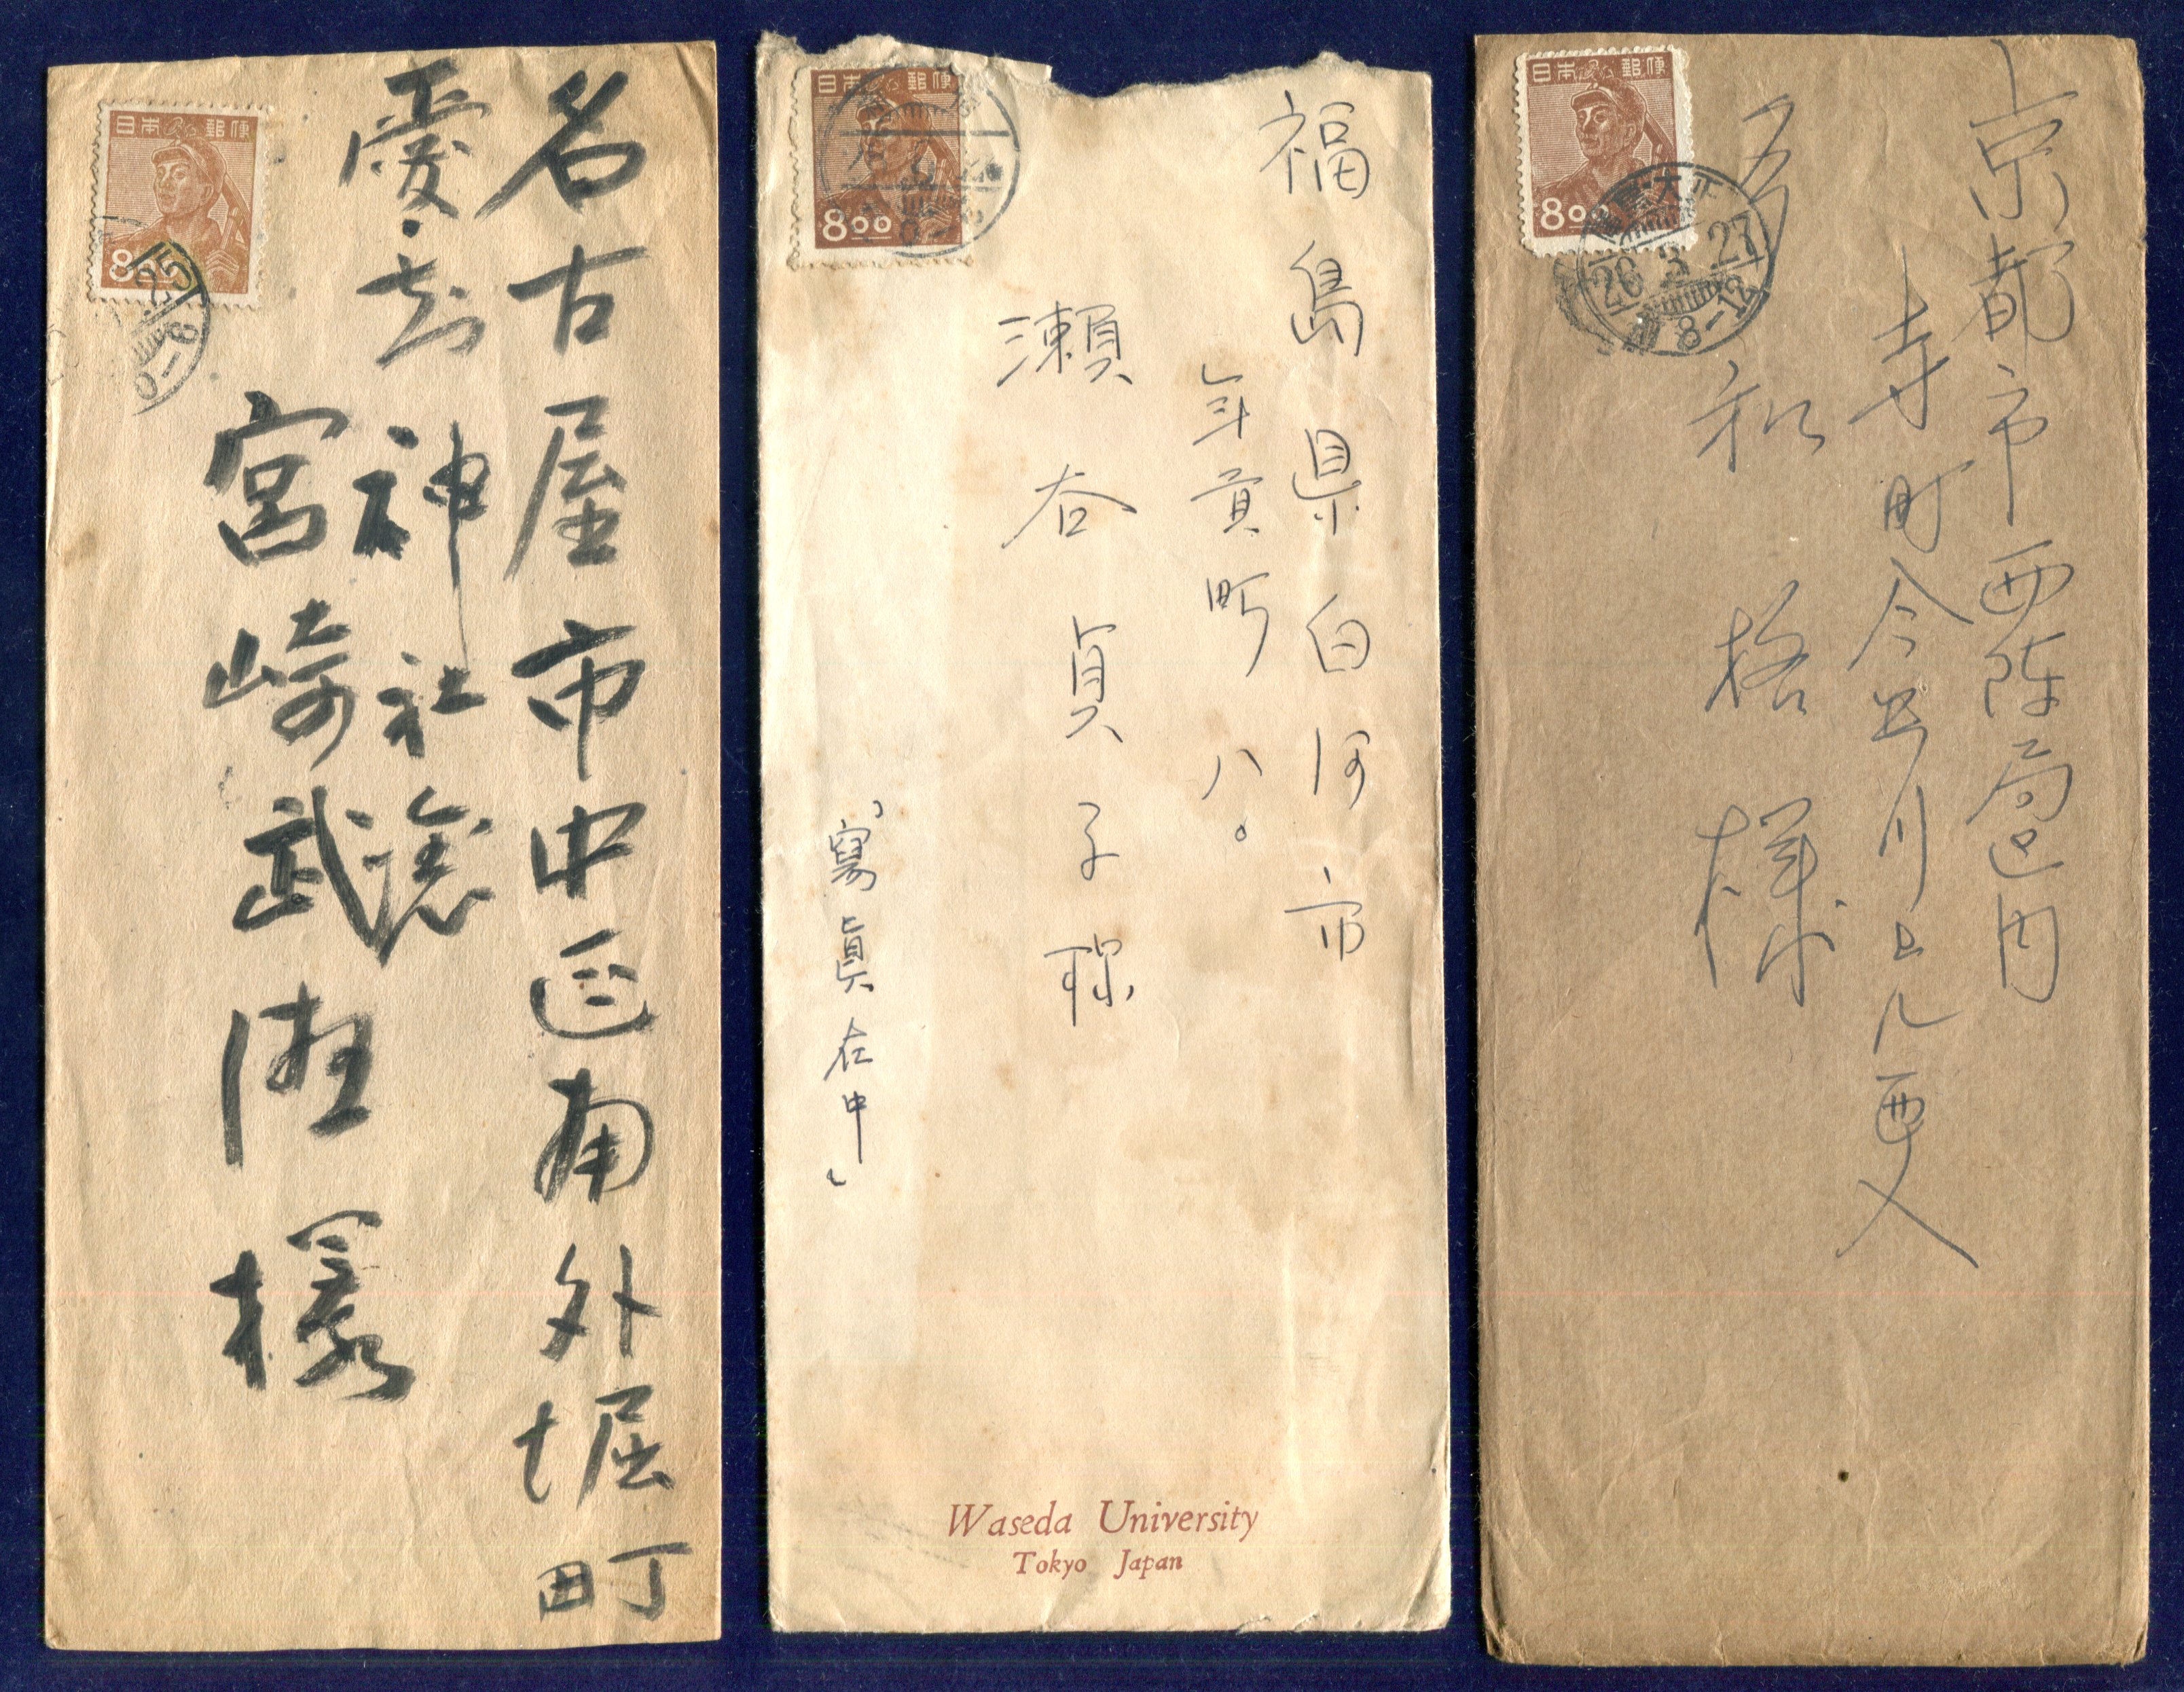 名古屋市中区南外堀町
愛知神社
宮崎武
様
日本郵便
8
25
福島県白河市
年貢町八。
瀬谷貞子様
「寫真在中」
日本郵便
800
Waseda University
Tokyo Japan
京都市西陣局区内
寺町今出川上ル西入
様
日本郵便
800
26 3 27
8-12